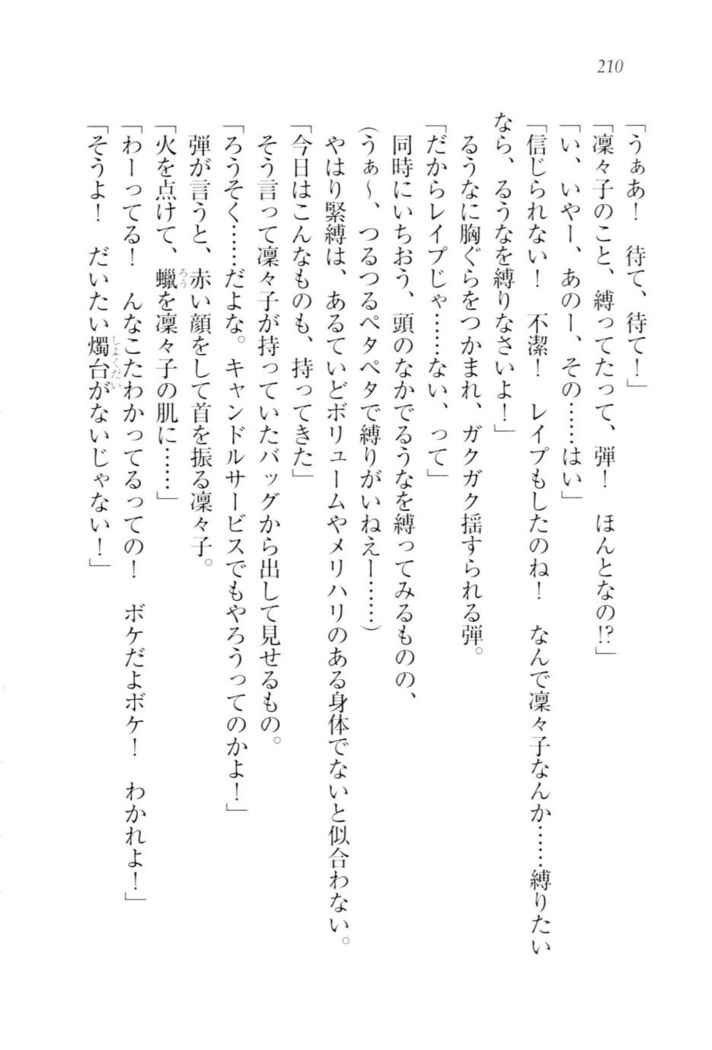 210
「うぁあ！　待て、待て！」
「凛々子のこと、縛ってたって、弾！　ほんとなの!?」
「い、いやー、あのー、その……はい」
「信じられない！　不潔！　レイプもしたのね！　なんで凛々子なんか……縛りたい
なら、るうなを縛りなさいよ！」
　るうなに胸ぐらをつかまれ、ガクガク揺すられる弾。
「だからレイプじゃ……ない、って」
　同時にいちおう、頭のなかでるうなを縛ってみるものの、
（うぁ〜、つるつるペタペタで縛りがいねえー……）
　やはり緊縛は、あるていどボリュームやメリハリのある身体でないと似合わない。
「今日はこんなものも、持ってきた」
　そう言って凛々子が持っていたバッグから出して見せるもの。
「ろうそく……だよな。キャンドルサービスでもやろうってのかよ！」
　弾が言うと、赤い顔をして首を振る凛々子。
「火を点けて、蠟を凛々子の肌に……」
「わーってる！　んなこたわかってるっての！　ボケだよボケ！　わかれよ！」
「そうよ！　だいたい燭台がないじゃない！」